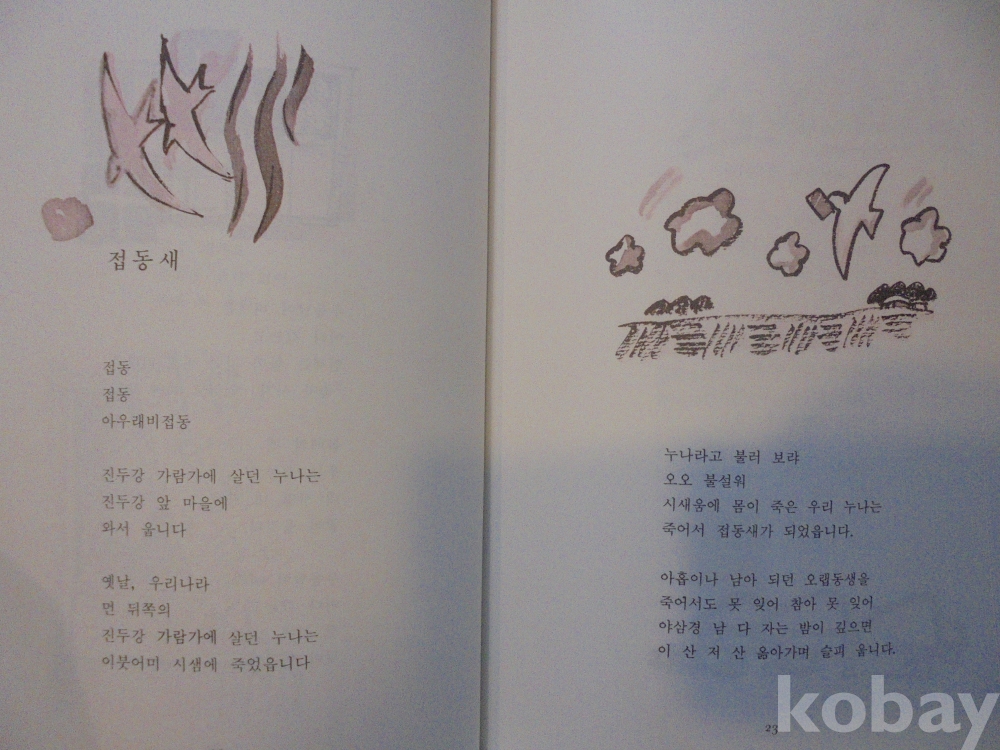 접동새
접동
접동
아우래비접동
진두강 가람가에 살던 누나는
진두강 앞 마을에
와서 웁니다
옛날, 우리나라
먼 뒤쪽의
진두강 가람가에 살던 누나는
이붓어미 시샘에 죽었읍니다
누나라고 불러 보랴
오오 불설워
시새움에 몸이 죽은 우리 누나는
죽어서 접동새가 되었읍니다.
아홉이나 남아 되던 오랩동생을
죽어서도 못 잊어 참아 못 잊어
야삼경 남 다 자는 밤이 깊으면
이 산 저 산 옮아가며 슬피 웁니다.
23
kobay